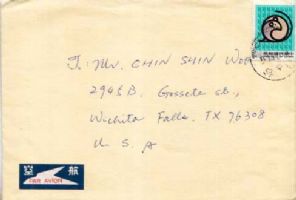 To: Mr. CHIN SHIN WON
2945B, Gossett st.,
Wichita Falls, TX 76308
U. S. A
航 空
PAR AVION